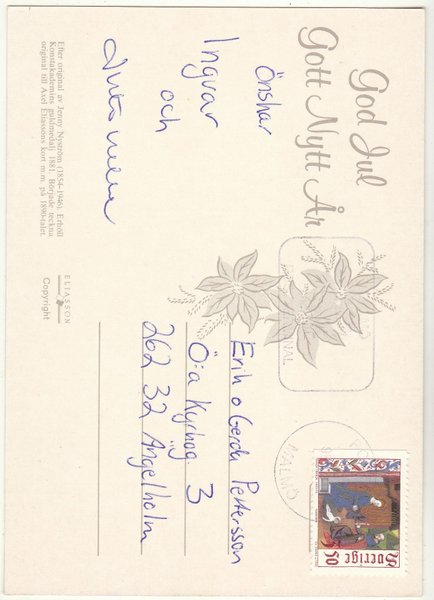 God Jul
Gott Nytt År
Önskar
Ingvar
och
Efter original av Jenny Nyström (1854-1946). Erhöll
Konstakademins guldmedalj 1881. Började teckna
original till Axel Eliassons kort m.m. på 1890-talet.
ELIASSON
Copyright
Erik o Gerda Pettersson
Ö:a Kyrkog 3
262 32 Ängelholm
MALMÖ
Sverige